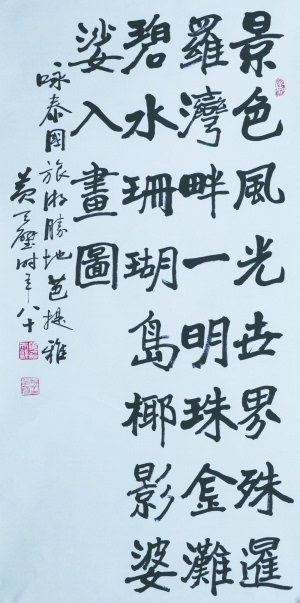 景色風光世界殊暹
羅灣畔一明珠金灘
碧水珊瑚島椰影婆
娑入畫圖
咏泰國旅游勝地芭提雅
黄天壁时年八十